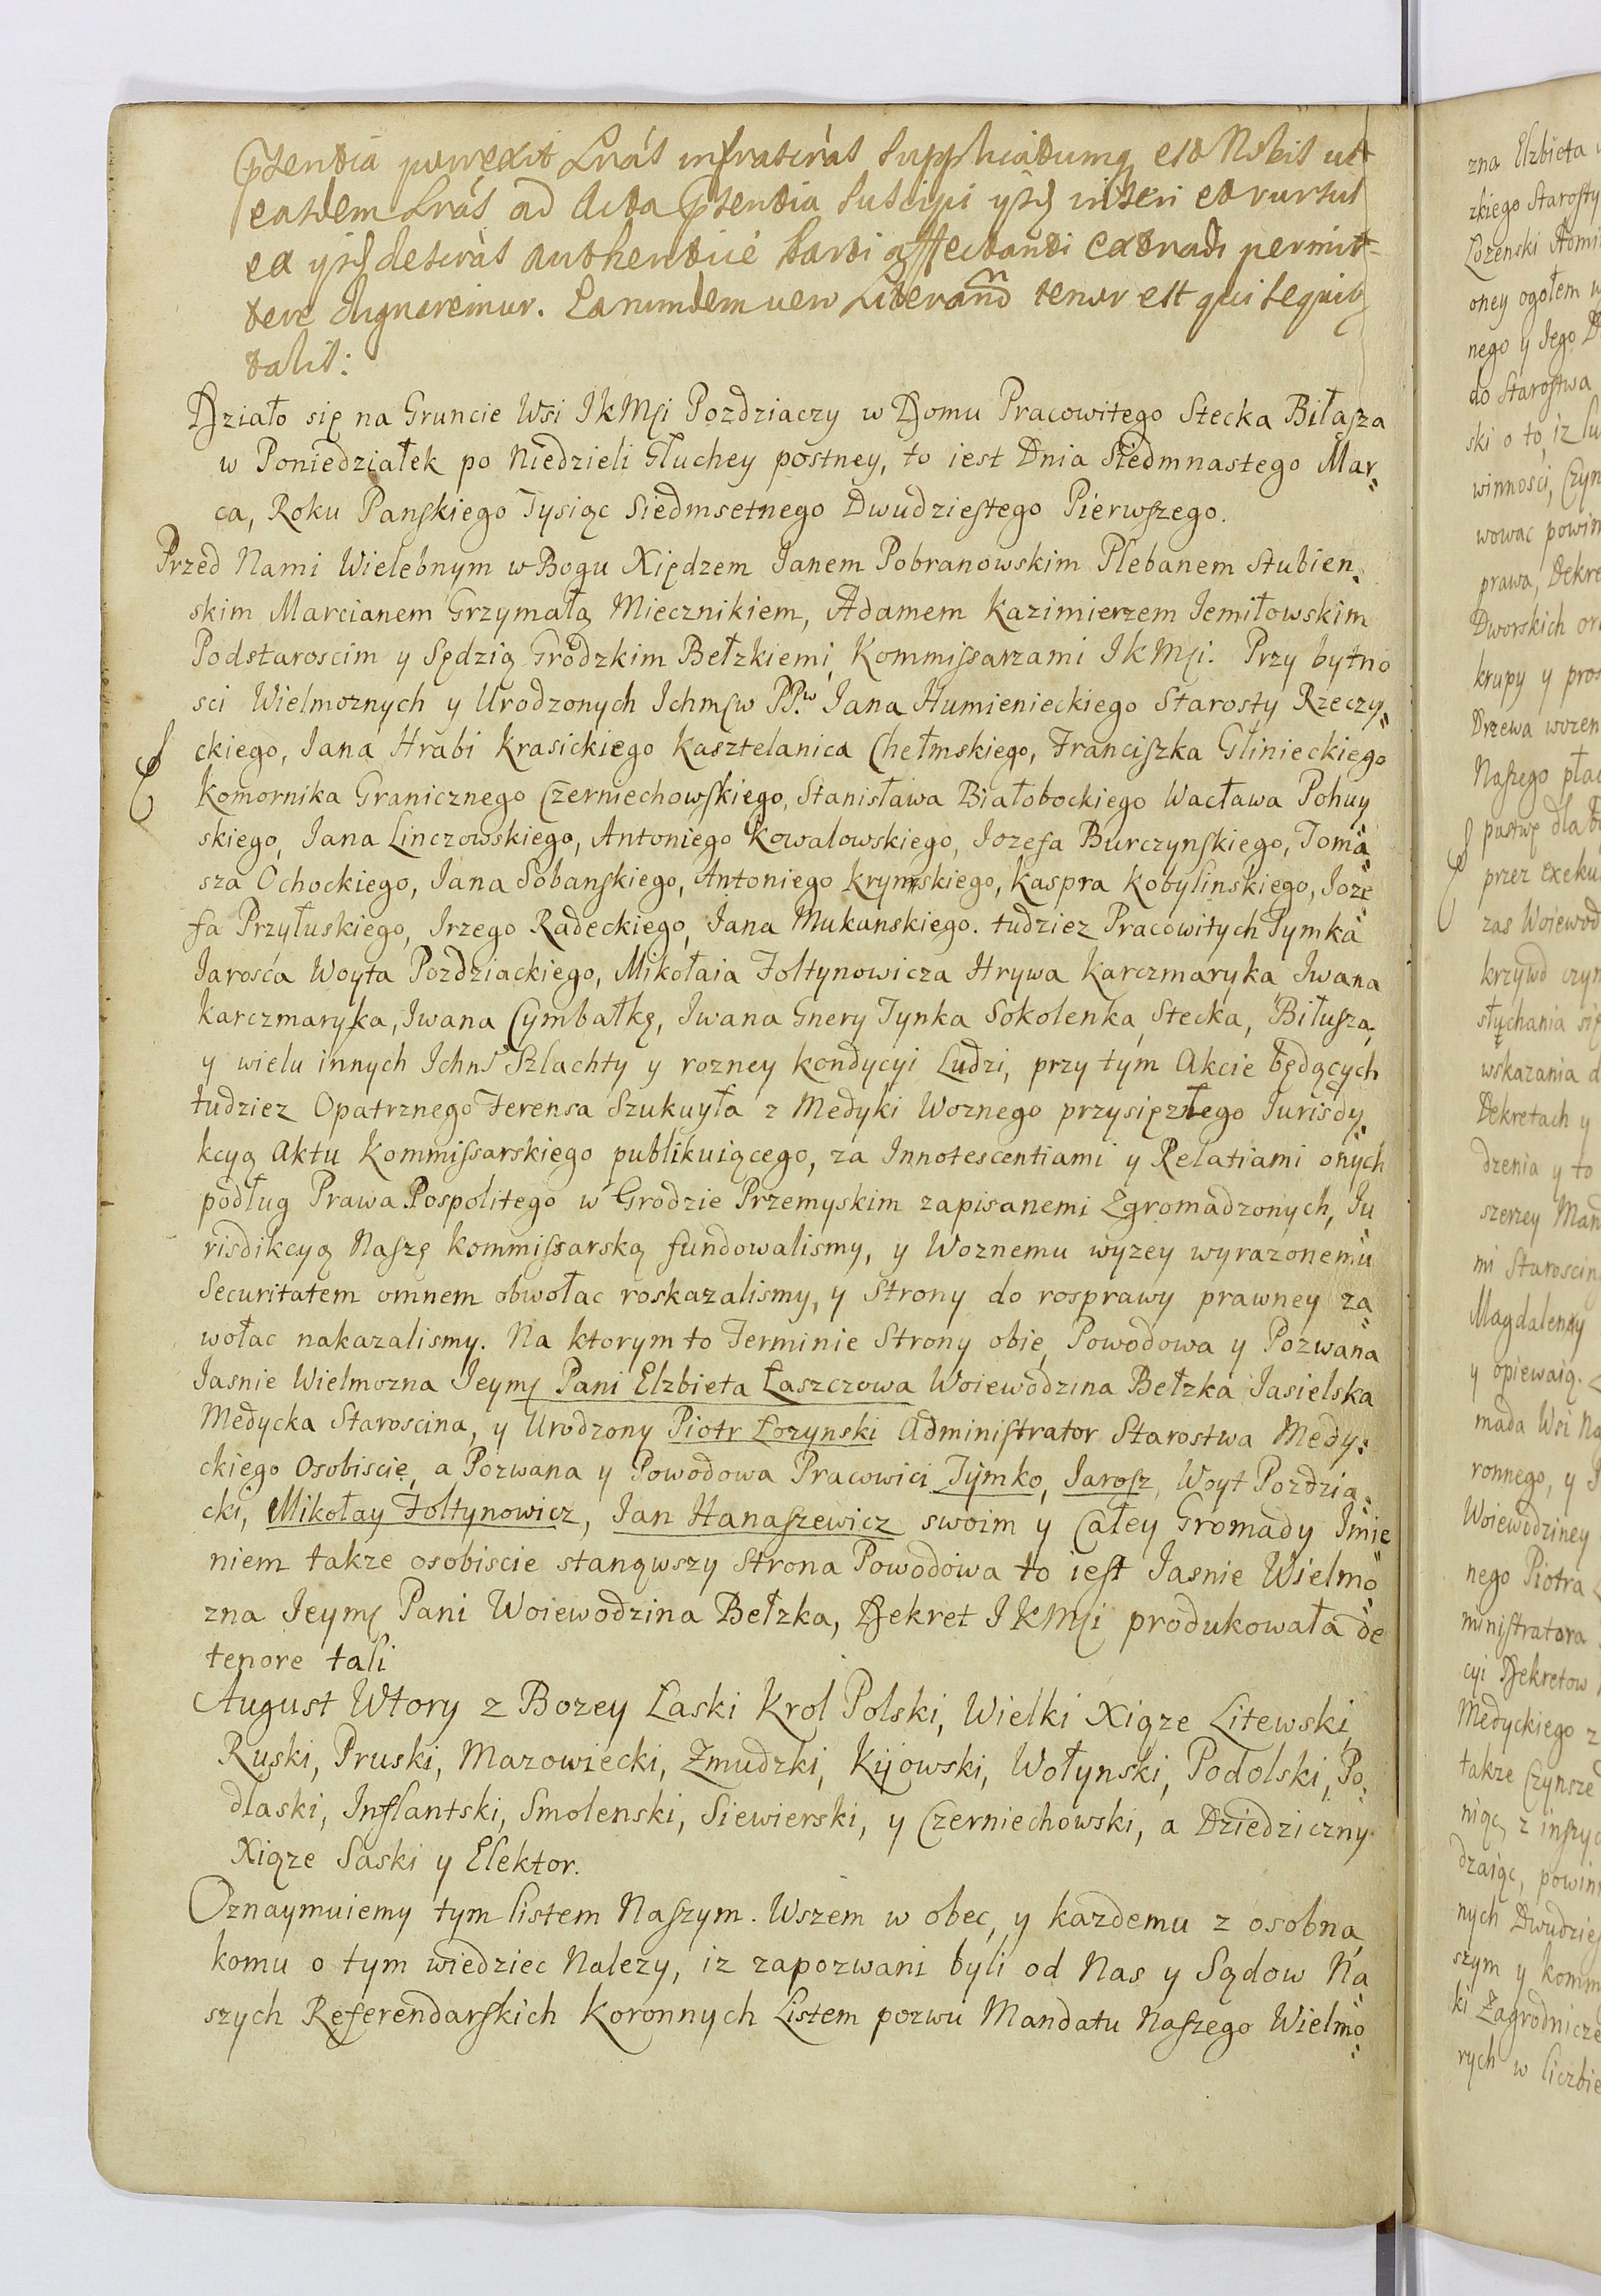 Pstentia porrexit Lrás infrascrás Supplicatumq est Nobis ut
easdem Lrás ad Acta Pstentia suscipi ysq inseri et rursus
ex ysq descrás authenticé parti affectanti extradi permit-
tere dignaremur. Earumdem vero Literarn tenor est qui sequitr
talis:
Działo się na Gruncie Wsi JkMsi Pozdziaczy w Domu Pracowitego Stecka Biłasza
w Poniedziałek po Niedzieli Głuchey postney, to iest Dnia Siedmnastego Mar„
ca, Roku Panskiego Tysiąc Siedmsetnego Dwudziestego Pierwszego.
Przed Nami Wielebnym w Bogu Xiędzem Janem Pobranowskim Plebanem Stubien„
skim Marcianem Grzymałą Miecznikiem, Adamem Kazimierzem Jemiłowskim
Podstaroscim y Sędzią Grodzkim Bełzkiemi Kommissarzami JkMsi. Przy bytno
sci Wielmoznych y Urodzonych Ichmsw PP.w Jana Humienieckiego Starosty Rzeczy„
ckiego, Jana Hrabi Krasickiego Kasztelanica Chełmskiego, Franciszka Glinieckiego
Komornika Granicznego Czerniechowskiego, Stanisława Białobockiego Wacława Pohuy
skiego, Jana Linczowskiego, Antoniego Kowalowskiego, Jozefa Burczynskiego, Toma„
sza Ochockiego, Jana Sobanskiego, Antoniego Krymskiego, Kaspra Kobylinskiego, Joze„
fa Przyłuskiego, Jrzego Radeckiego, Jana Mukanskiego. tudziez Pracowitych Tymka
Jarosca Woyta Pozdziackiego, Mikołaia Foltynowicza Hrywa Karczmaryka Jwana
Karczmaryka, Jwana Cymbałkę, Jwana Gnery Tynka Sokolenka Stecka, Biłusza,
y wielu innych Ichms Szlachty y rozney kondycyi Ludzi, przy tym Akcie będących
tudziez Opatrznego Ferensa Szukuyła z Medyki Woznego przysięzłego Jurisdy„
kcyą Aktu Kommissarskiego publikuiącego, za Innotescentiami y Relatiami onych
podług Prawa Pospolitego w Grodzie Przemyskim zapisanemi Zgromadzonych, Ju„
risdikcyą Naszę kommissarską fundowalismy, y Woznemu wyzey wyrazonemu
Securitatem omnem obwołac roskazalismy, y Strony do rosprawy prawney za„
wołac nakazalismy. Na ktorym to Terminie Strony obie, Powodowa y Pozwana
Jasnie Wielmozna Jeyms Pani Elzbieta Łaszczowa Woiewodzina Bełzka Jasielska
Medycka Staroscina, y Urodzony Piotr Łozynski Administrator Starostwa Medy„
ckiego Osobiscie, a Pozwana y Powodowa Pracowici Tymko, Jarosz, Woyt Pozdzia„
cki, Mikołay Foltynowicz, Jan Hanaszewicz swoim y Całey Gromady Jmie„
niem takze osobiscie stanąwszy Strona Powodowa to iest Jasnie Wielmo„
zna Jeyms Pani Woiewodzina Bełzka, Dekret JKMsi produkowała de
tenore tali
August Wtory z Bozey Łaski Krol Polski, Wielki Xiąze Litewski,
Ruski, Pruski, Mazowiecki, Zmudzki, Kijowski, Wołynski, Podolski, Po„
dlaski, Inflantski, Smolenski, Siewierski, y Czerniechowski, a Dziedziczny
Xiąze Saski y Elektor.
Oznaymuiemy tym listem Naszym. Wszem w obec, y kazdemu z osobna,
komu o tym wiedziec Nalezy, iz zapozwani byli od Nas y Sądow Na„
szych Referendarskich Koronnych Listem pozwu Mandatu Naszego Wielmo„
zna Elzbieta
zkiego Starosty
Łozenski Admi
oney ogołem w
nego y Jego D
do Starostwa
ski o to, iz lu
winnosci, Czyn
wowac powin
prawa, Dekre
Dworskich or
krupy y pros
Drzewa wozen
Naszego płac
pastwę dla b
przez exeku
zas Woiewod
krzywd czyn
słychania się
wskazania d
Dekretach y
dzenia y to
szerzey Man
mi Staroscin
Magdaleny
y opiewaią.
mada Wsi Na
ronnego, y J
Woiewodziney
nego Piotra
ministratora
cyi Dekretow
Medyckiego z
takze Czynsze
niąc, z inszyc
dzaiąc, powin
nych Dwudzies
szym y komm
ki Zagrodnicze
rych w liczbie